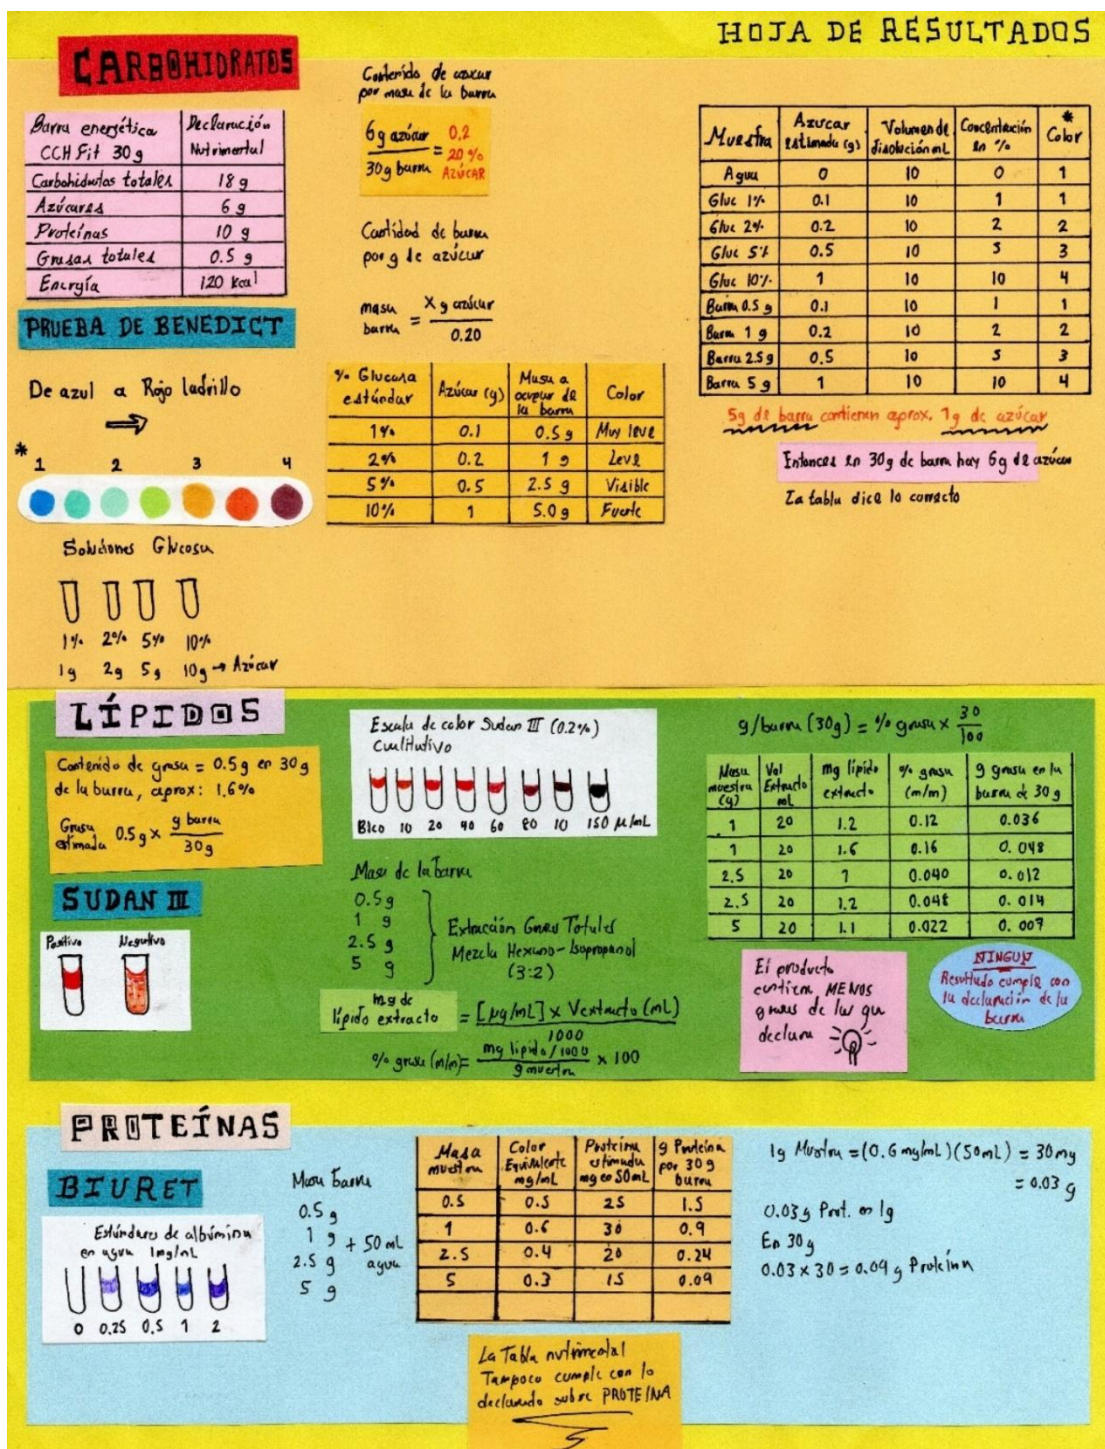 HOJA DE RESULTADOS
CARBOHIDRATOS
Barra energética CCH Fit 30 g | Declaración Nutrimental
Carbohidratos totales | 18 g
Azúcares | 6 g
Proteínas | 10 g
Grasas totales | 0.5 g
Energía | 120 kcal
PRUEBA DE BENEDICT
De azul a Rojo ladrillo
*
1 2 3 4
Soluciones Glucosa
1% 2% 5% 10%
1g 2g 5g 10g → Azúcar
Contenido de azucar
por masa de la barra
6g azúcar
30g barra
= 0,2
20 %
AZÚCAR
Cantidad de barra
por g de azúcar
masa barra = X g azúcar
0.20
% Glucosa estándar | Azúcar (g) | Masa a ocupar de la barra | Color
1% | 0.1 | 0.5 g | Muy leve
2% | 0.2 | 1 g | Leve
5% | 0.5 | 2.5 g | Visible
10% | 1 | 5.0 g | Fuerte
Muestra | Azucar estimada (g) | Volumen de disolución mL | Concentración en % | * Color
Agua | 0 | 10 | 0 | 1
Gluc 1% | 0.1 | 10 | 1 | 1
Gluc 2% | 0.2 | 10 | 2 | 2
Gluc 5% | 0.5 | 10 | 5 | 3
Gluc 10% | 1 | 10 | 10 | 4
Barra 0.5 g | 0.1 | 10 | 1 | 1
Barra 1 g | 0.2 | 10 | 2 | 2
Barra 2.5 g | 0.5 | 10 | 5 | 3
Barra 5 g | 1 | 10 | 10 | 4
5g de barra contienen aprox. 1g de azúcar
Entonces en 30g de barra hay 6g de azúcar
La tabla dice lo correcto
LÍPIDOS
Contenido de grasa = 0.5 g en 30 g
de la barra, aprox: 1.6%
Grasa estimada 0.5 g x g barra
30 g
SUDAN III
Positivo Negativo
Escala de color Sudan III (0.2%)
Cualitativo
Blco 10 20 40 60 80 10 150 µ/mL
Masa de la barra
0.5 g
1 g
2.5 g
5 g
Extracción Grasas Totales
Mezcla Hexano-Isopropanol
(3:2)
mg de
lípido extracto = [µg/mL] x Vextracto (mL)
1000
% grasa (m/m) = mg lípido/1000
g muestra
x 100
g/barra (30g) = % grasa x 30
100
Masa muestra (g) | Vol Extracto mL | mg lípido extracto | % grasa (m/m) | g grasa en la barra de 30 g
1 | 20 | 1.2 | 0.12 | 0.036
1 | 20 | 1.6 | 0.16 | 0.048
2.5 | 20 | 1 | 0.040 | 0.012
2.5 | 20 | 1.2 | 0.048 | 0.014
5 | 20 | 1.1 | 0.022 | 0.007
El producto
contiene MENOS
grasas de las que
declara
NINGUN
Resultado cumple con
la declaración de la
barra
PROTEÍNAS
BIURET
Estándares de albúmina
en agua 1mg/mL
0 0.25 0.5 1 2
Masa barra
0.5 g
1 g
2.5 g
5 g
+ 50 mL
agua
Masa muestra | Color Equivalente mg/mL | Proteína estimada mg en 50mL | g Proteína por 30 g barra
0.5 | 0.5 | 25 | 1.5
1 | 0.6 | 30 | 0.9
2.5 | 0.4 | 20 | 0.24
5 | 0.3 | 15 | 0.09
La Tabla nutrimental
Tampoco cumple con lo
declarado sobre PROTEÍNA
1g Muestra = (0.6 mg/mL)(50mL) = 30mg
= 0.03 g
0.03g Prot. en 1g
En 30 g
0.03 x 30 = 0.09 g Proteína